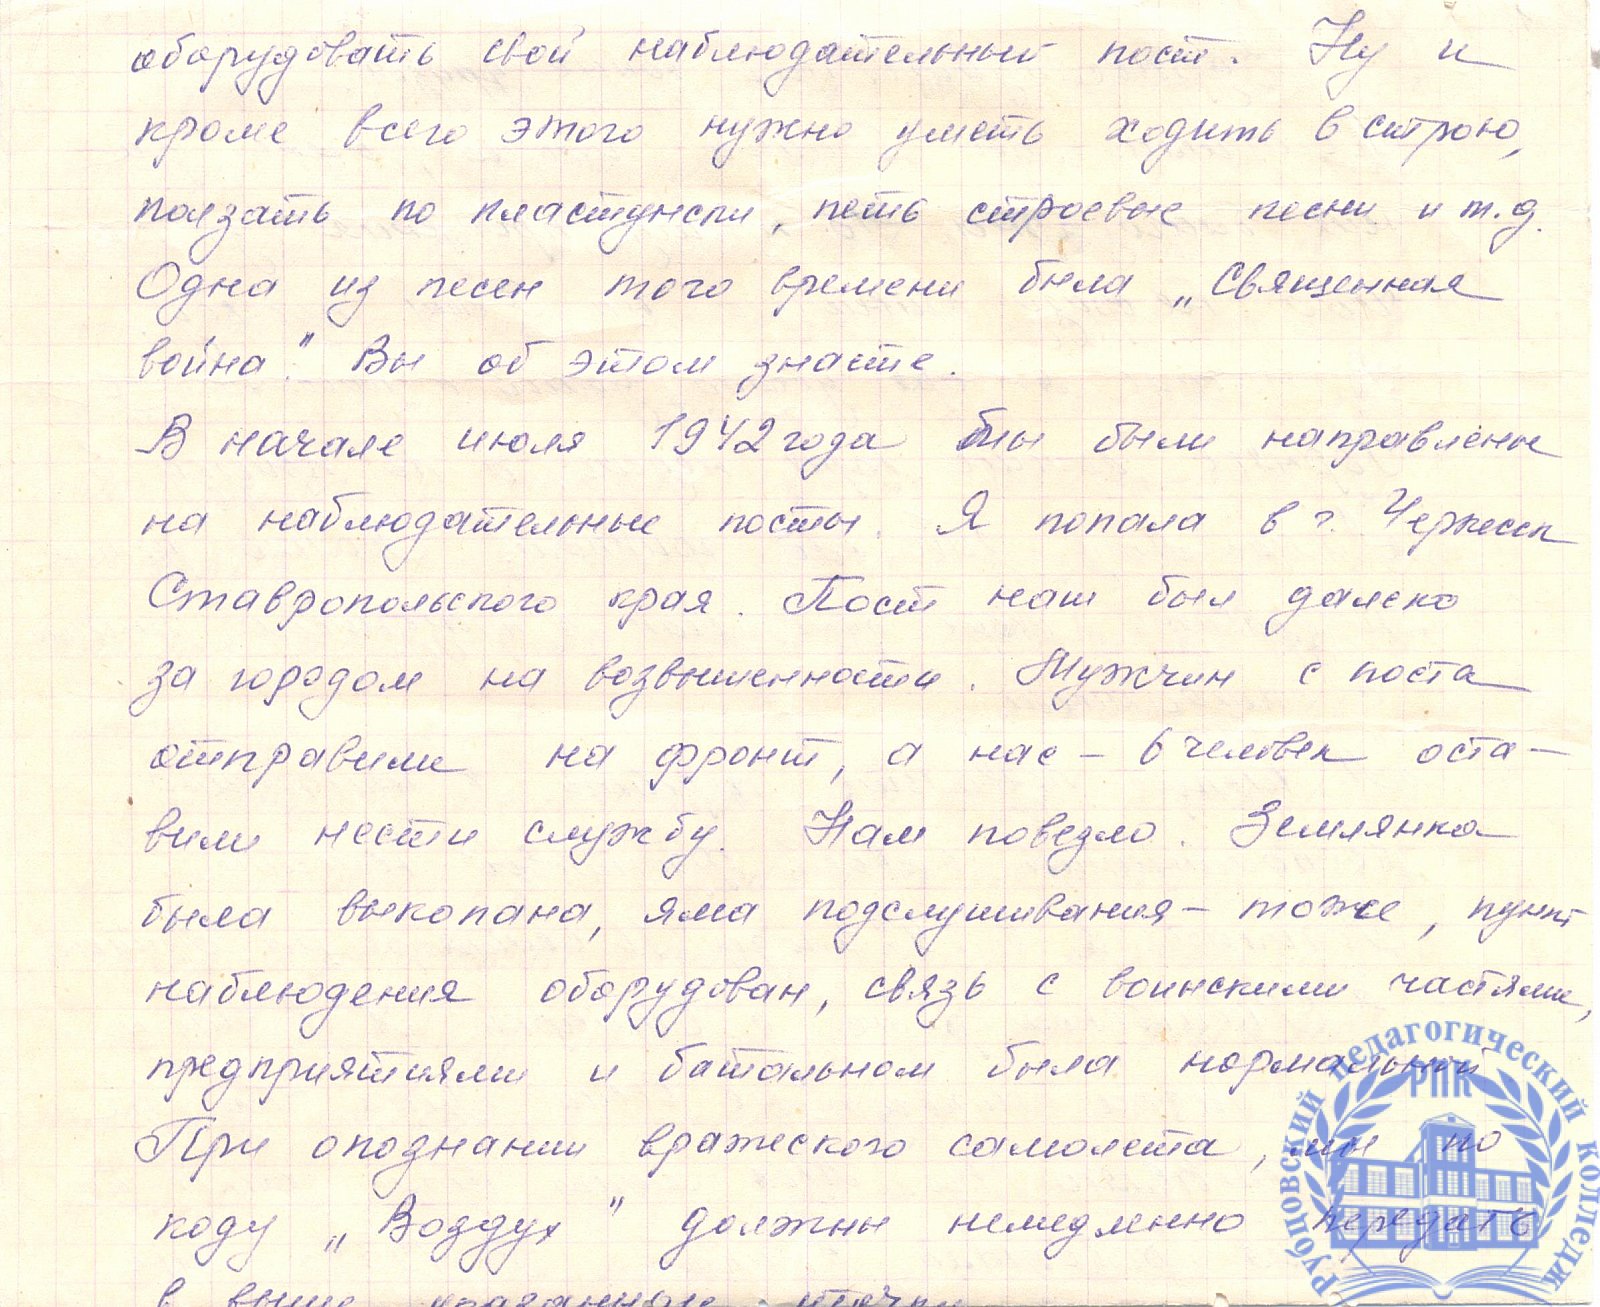 оборудовать свой наблюдательный пост. Ну и
кроме всего этого нужно уметь ходить в строю,
ползать по пластунски, петь строевые песни и т.д.
Одна из песен того времени была „Священная
война." Вы об этом знаете.
В начале июля 1942 года мы были направлены
на наблюдательные посты. Я попала в г. Черкесск
Ставропольского края. Пост наш был далеко
за городом на возвышенности. Мужчин с поста
отправили на фронт, а нас – 6 человек оста–
вили нести службу. Нам повезло. Землянка
была выкопана, яма подслушивания – тоже, пункт
наблюдения оборудован, связь с воинскими частями,
предприятиями и батальном была нормальной
При опознании вражеского самолета, мы по
коду „Воздух" должны немедленно передать
в выше указанные точки
Рубцовский педагогический колледж
РПК